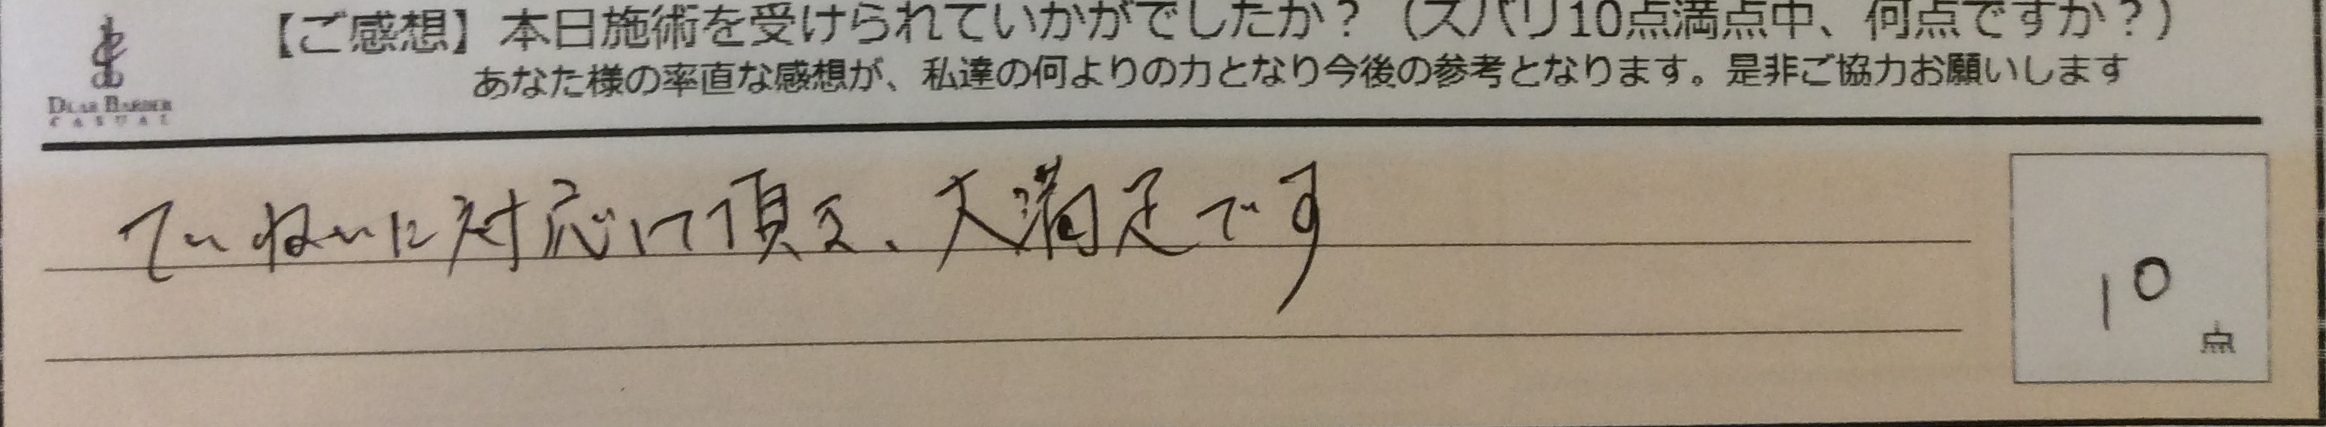 【ご感想】本日施術を受けられていかがでしたか？（ズバリ10点満点中、何点ですか？）
あなた様の率直な感想が、私達の何よりの力となり今後の参考となります。是非ご協力お願いします
DEAR BARBER
CASUAL
ていねいに対応して頂き、大満足です
10
点